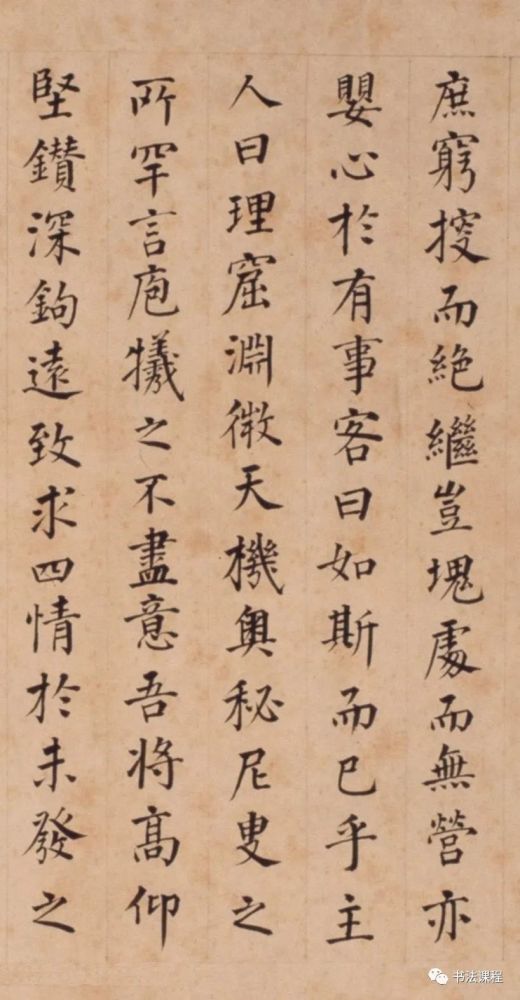 庶窮搜而絶繼豈塊處而無營亦
嬰心於有事客曰如斯而已乎主
人曰理窟淵微天機奥秘尼叟之
所罕言庖犧之不盡意吾將髙仰
堅鑚深鉤遠致求四情於未發之
书法课程